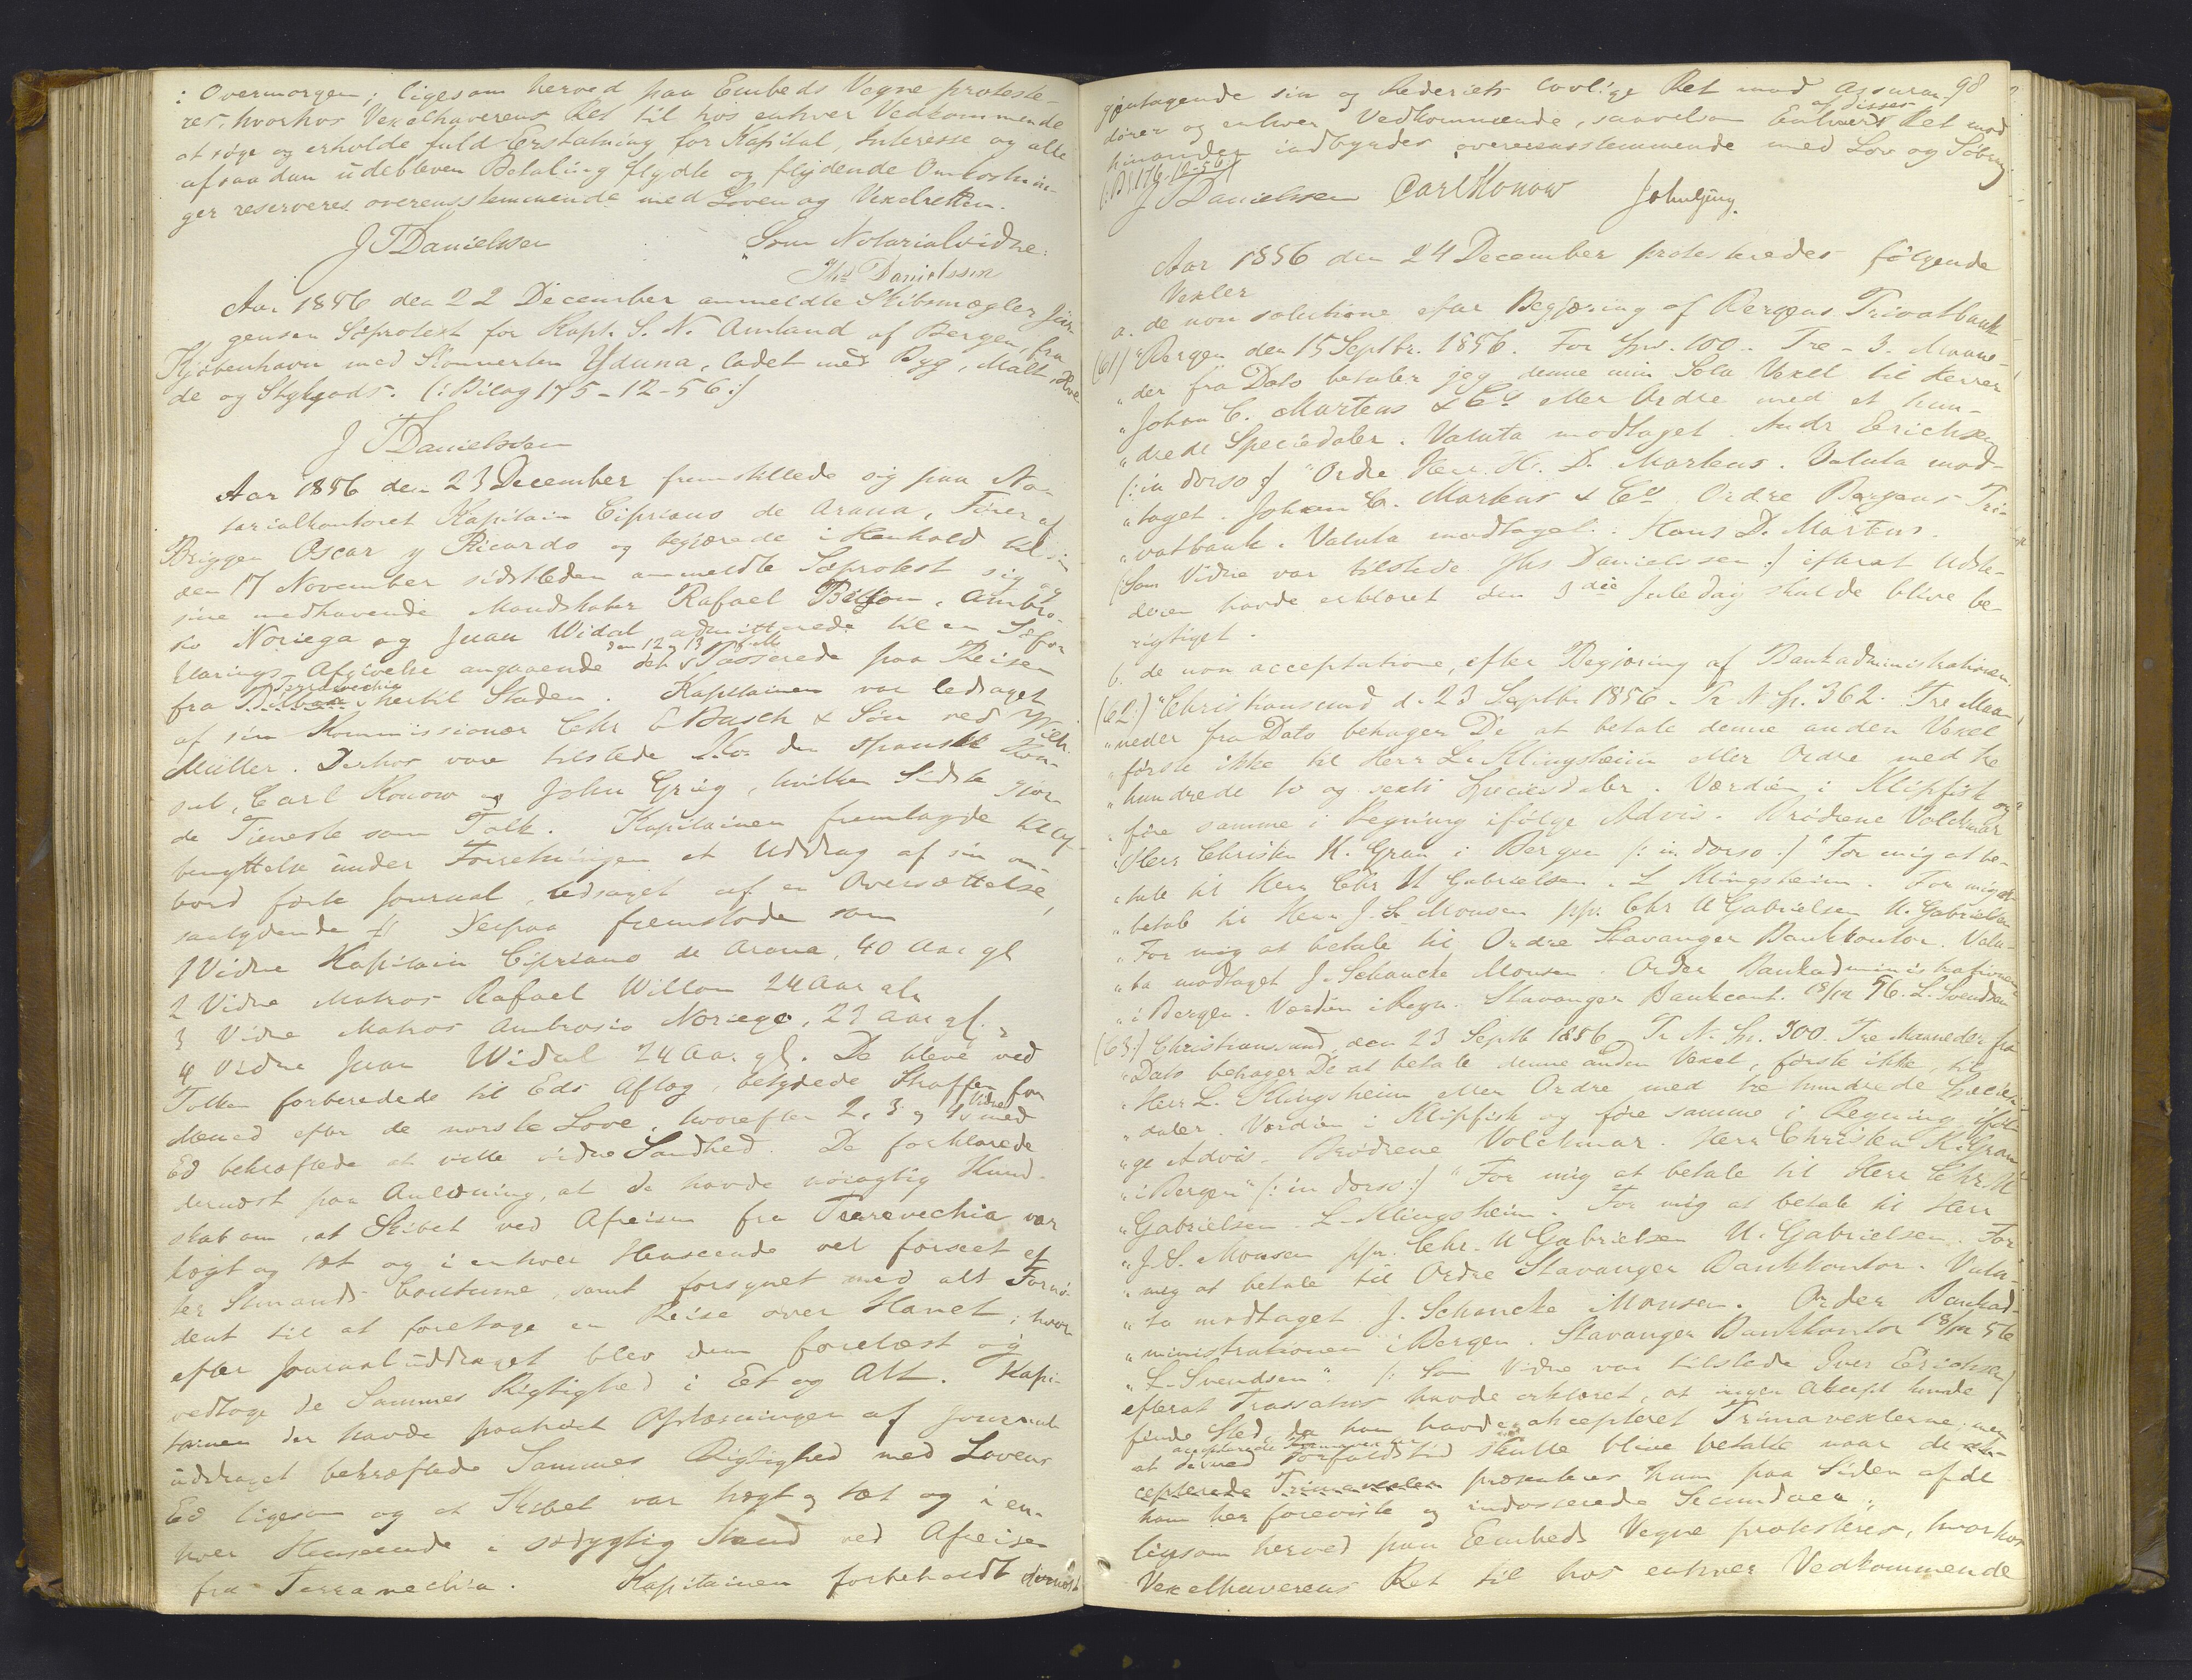 : Overmorgen; ligesom herved paa Embeds Vegne proteste-
res, hvorhos Vexelhaverens Ret til hos enhver Vedkommende
at søge og erholde fuld Erstatning for Kapital, Interesse og alle
af saadan udebleven Betaling flydte og flydende Omkostnin-
ger reserveres overensstemmende med Loven og Vexelretten.
J T Danielssen
Som Notarialvidne:
Ths Danielssen
Aar 1856 den 22 December anmeldte Skibsmægler Jür-
gensen Søprotest for Kapt. S. N. Amland af Bergen, fra
Kjøbenhavn med Skonnerten Yduna, ladet med Byg, Malt, Hve
de og Stykgods. (: Bilag 175-12-56 :)
J T Danielssen
Aar 1856 den 23 December fremstillede sig paa No-
tarialkontoret Kapitain Cipriano de Arana, Fører af
Briggen Oscar y Ricardo og begjærede i Henhold til sin
den 17 November sidstleden anmeldte Søprotest sig og
sine medhavende Mandskaber Rafael Billom, Ambro-
sio Noriega og Juan Widal admitterede til en Søfor
klarings Afgivelse angaaende det den 12 og 13 Passerede paa Reisen
fra Bilbao Terravechia hertil Staden. Kapitainen var ledsaget
af sin Kommissionær Chr C Basch & Søn ved
Müller. Derhos vare tilstede den spanske Kon-
sul, Carl Konow og John Grieg, hvilken Sidste gjor-
de Tjeneste som Tolk. Kapitainen fremlagde til Af-
benyttelse under Forretningen et Uddrag af sin om-
bord førte Journal, ledsaget af en Oversættelse,
saalydende // Derpaa fremstode som
1 Vidne Kapitain Cipriano de Arana, 40 Aar gl
2 Vidne Matros Rafael Willom 24 Aar gl.
3 Vidne Matros Ambrosio Noriega, 23 Aar gl.
4 Vidne Juan Widal 24 Aar gl. De bleve ved
Tolken forberedede til Eds Aflæg, betydede Straffen for
Meened efter de norske Love, hvorefter 2, 3 og 4 Vidne med
Ed bekræftede at ville vidne Sandhed. De forklarede
dernæst paa Anledning, at de havde nøiagtig Kund-
skab om, at Skibet ved Afreisen fra Terravechia var
tægt og tæt og i enhver Henseende vel forseet ef
ter Sømands Coutume, samt forsynet med alt Fornø-
dent til at foretage en Reise over Havet; hvor
efter Journaluddraget blev dem forelæst og
vedtoge de Sammes Rigtighed i Et og Alt. Kapi-
tainen der havde paahørt Oplæsningen af Journal-
uddraget bekræftede Sammes Rigtighed med Lovens
Ed ligesom og at Skibet var tægt og tæt og i en-
hver Henseende i sødygtig Stand ved Afreisen
fra Terravechia. Kapitainen forbeholdt dernæst
98
gjentagende sin og Rederiets lovlige Ret mod Assuran-
dører og enhver Vedkommende, saavelsom Enhvers af disses Ret mod
hinanden indbyrdes overensstemmende med Lov og Søbrug
(: B 176-12-56 :)
J T Danielssen Carl Konow John Grieg.
Aar 1856 den 24 December protesteredes følgende
Vexler
a. de non solutione efter Begjæring af Bergens Privatbank
(61) "Bergen den 15 Septbr. 1856. For Spd. 100. Tre - 3. Maane-
"der fra Dato betaler jeg denne min Sola Vexel til Herrer
"Johan C. Martens & Co eller Ordre med et hun-
"drede Speciedaler. Valuta modtaget. Andr Erichsen
(: in dorso :) "Ordre Herr H. D. Martens. Valuta mod-
"taget. Johan C. Martens & Co Ordre Bergens Pri-
"vatbank. Valuta modtaget. Hans D. Martens.
(: Som Vidne var tilstede Ths Danielssen :) efterat Udste-
deren havde erklæret den 3die Juledag skulde blive be-
rigtiget.
b. de non acceptatione, efter Begjæring af Bankadministrationen.
(62.) "Christiansund d. 23 Septbr 1856. Pr N Sp. 362. Tre Maa-
"neder fra Dato behager De at betale denne anden Vexel
"første ikke til Herr L. Klingsheim eller Ordre med tre
"hundrede to og sexti Speciesdaler. Værdien i Klipfisk og
"føre samme i Regning ifølge Advis. Brødrene Volckmar
"Herr Christen K. Gran i Bergen (: in dorso :) "For mig at be-
"tale til Herr Chr U Gabrielsen. L Klingsheim. For mig at
"betale til Herr J. S. Monsen pp. Chr U Gabrielsen U. Gabrielsen
"For mig at betale til Ordre Stavanger Bankkontor. Valu-
"ta modtaget J. Schancke Monsen. Order Bankadministrationen
"i Bergen. Værdien i Regn. Stavanger Bankcont. 18/12 56. L. Svendsen
(63.) Christiansund den 23 Septb 1856 Pr N. Sp. 300. Tre Maaneder fra
"Dato behager De at betale denne anden Vexel, første ikke, til
"Herr L. Klingsheim eller Ordre med tre hundrede Specie
"daler. Værdien i Klipfisk og føre samme i Regning iføl-
"ge Advis. Brødrene Volckmar. Herr Christen K. Gran
"i Bergen" (: in dorso :) "For mig at betale til Herr Chr. U
"Gabrielsen. L. Klingsheim. For mig at betale til Herr
"J. S. Monsen ppr. Chr. U Gabrielsen U. Gabrielsen. For
"mig at betale til Ordre Stavanger Bankkontor. Valu-
"ta modtaget J. Schancke Monsen. Order Bankad-
"ministrationen i Bergen. Stavanger Bankkontor 18/12 56
"L. Svendsen". (: Som Vidne var tilstede Iver Erichsen :)
efterat Trassatus havde erklæret, at ingen Accept kunde
finde Sted, da han havde akcepteret Primavexlerne, men
at ved Forfaldstid skulle blive betalte naar de ak-
cepterede Primavexler præsenteres ham paa Siden af de
ham her foreviste og indosserede Secundaer;
ligesom herved paa Embeds Vegne protesteres, hvorhos
Vexelhaverens Ret til hos enhver Vedkommende